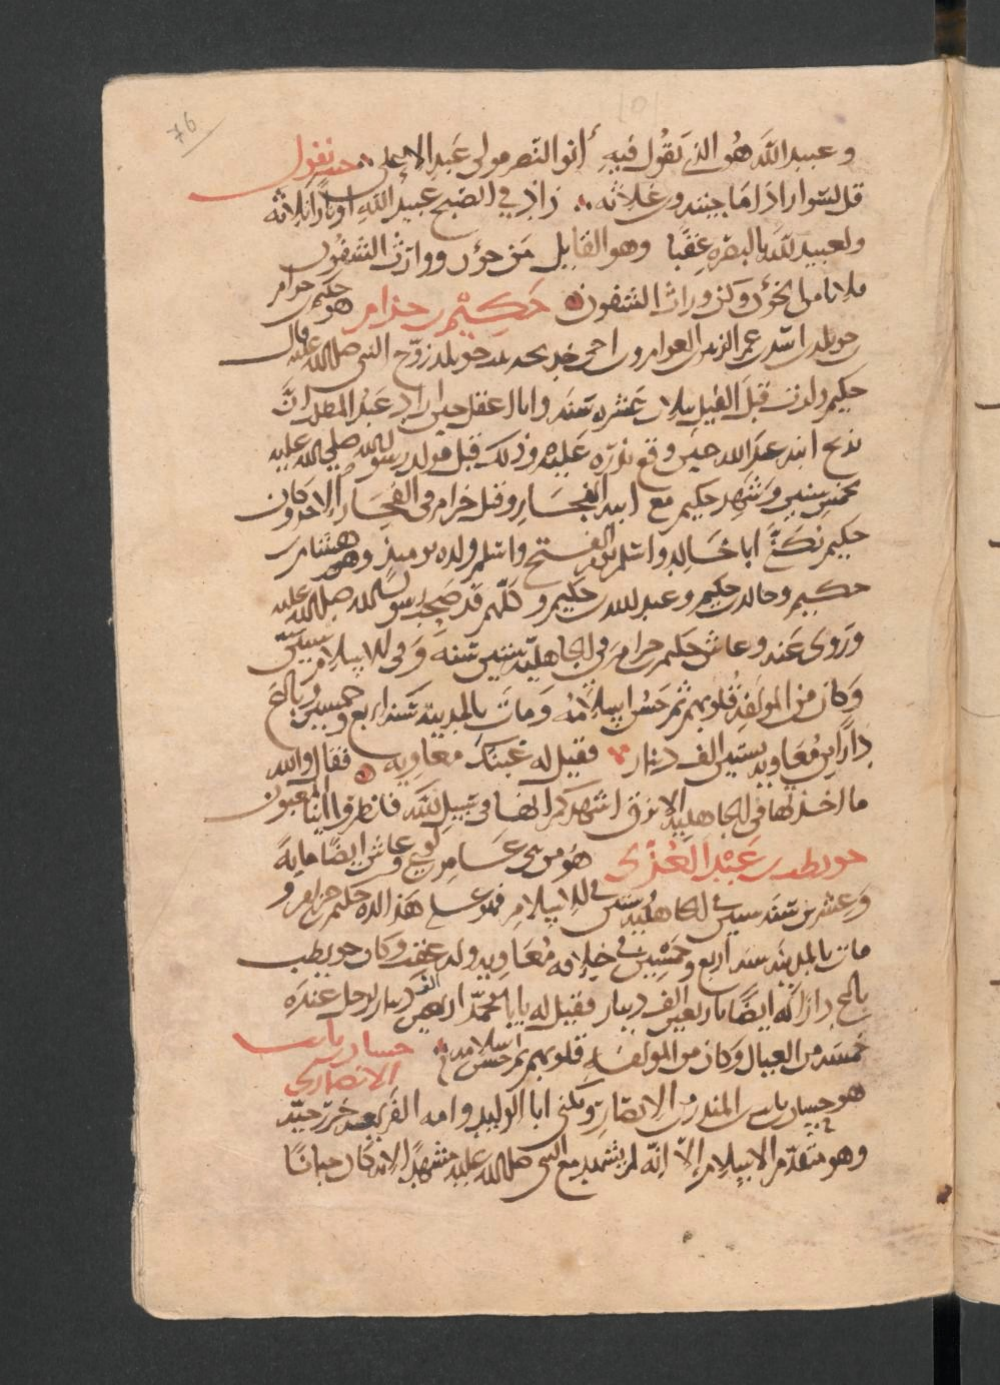 76
وعبيد الله هو الذي يقول فيه أبو النضر مولى عبد الاعلى حيث يقول
قل لسوار اذا ما جئته وابن علاثه زاد في الصبح عبيد الله اوتارا ثلاثه
ولعبيد الله بالبصره عقبا وهو القايل من حول ووارث الشفون
حكيم بن حزام هو حكيم بن حزام
بن خويلد بن اسد بن عم الزبير بن العوام وابن اخي خديجه بنت خويلد زوج النبي صلى الله عليه قال
حكيم ولدت قبل الفيل بثلاث عشره سنه وانا اعقل حين اراد عبد المطلب ان
يذبح ابنه عبد الله حين وقع نذره عليه وذلك قبل مولد رسول الله صلى الله عليه
بخمس سنين وشهد حكيم مع ابيه الفجار وقتل حزام في الفجار الاخر وكان
حكيم يكنى ابا خالد واسلم يوم الفتح واسلم ولده يوميذ وهم هشام بن
حكيم وخالد بن حكيم وعبد الله بن حكيم وكلهم قد صحب رسول الله صلى الله عليه
وروى عنه وعاش حكيم بن حزام في الجاهليه ستين سنه وفي الاسلام ستين
وكان من المولفه قلوبهم ثم حسن اسلامه ومات بالمدينه سنه اربع وخمسين وباع
دارا من معاويه بستين الف دينار فقيل له غبنك معاويه فقال والله
ما اخذتها في الجاهليه الا بزق اشهدكم انها في سبيل الله فانظروا اينا المغبون
حويطب بن عبد العزى هو من بني عامر بن لوي وعاش ايضا مايه
وعشرين سنه ستين في الجاهليه وستين في الاسلام حكيم بن حزام و
مات بالمدينه سنه اربع وخمسين في خلافه معاويه وله عقب وكان حويطب
باع دارا له ايضا باربعين الف دينار فقيل له يابا محمد اربعين الف دينار لرجل عنده
خمسه من العيال وكان من المولفه قلوبهم ثم حسن اسلامه حسان بن ثابت
الانصاري
هو حسان بن ثابت بن المنذر من الانصار ويكنى ابا الوليد وامه الفريعه خزرجيه
وهو متقدم الاسلام الا انه لم يشهد مع النبي صلى الله عليه مشهدا لانه كان جبانا